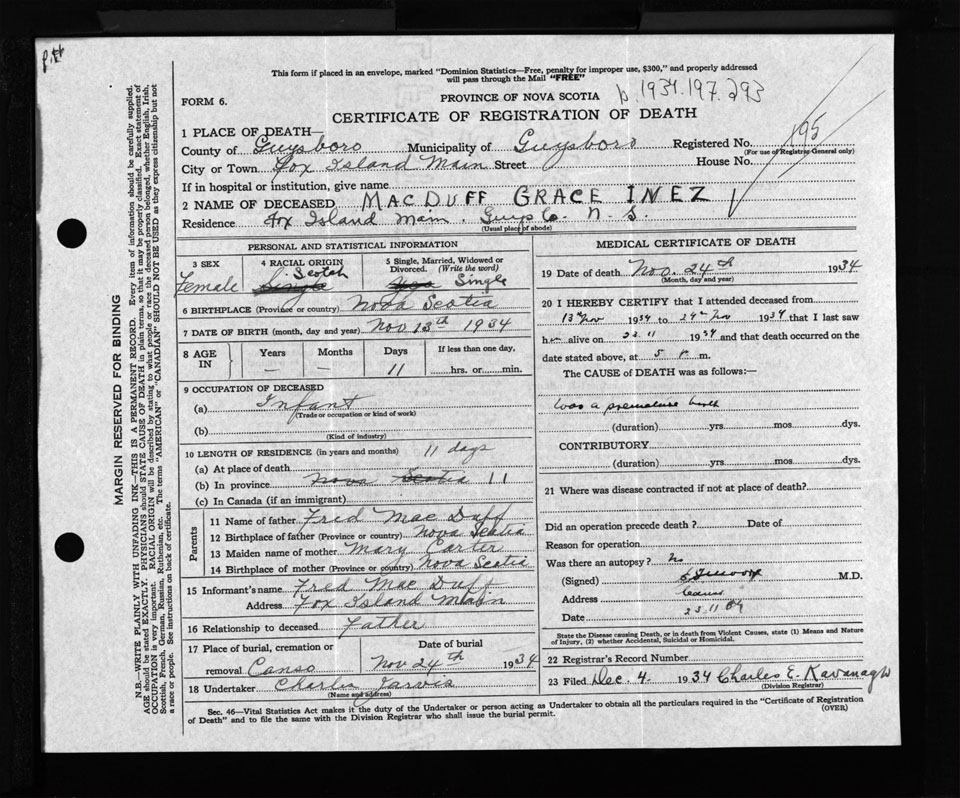 This form if placed in an envelope, marked "Dominion Statistics—Free, penalty for improper use, $300," and properly addressed
will pass through the Mail "FREE"
FORM 6.
PROVINCE OF NOVA SCOTIA
1934.197.293
CERTIFICATE OF REGISTRATION OF DEATH
195
1 PLACE OF DEATH—
County of Guysboro Municipality of Guysboro Registered No.
(For use of Registrar General only)
City or Town Fox Island Main Street House No.
If in hospital or institution, give name
2 NAME OF DECEASED MACDUFF GRACE INEZ
Residence Fox Island Main. Guys Co. N. S.
(Usual place of abode)
PERSONAL AND STATISTICAL INFORMATION
3 SEX
Female
4 RACIAL ORIGIN
Scotch
Single
5 Single, Married, Widowed or Divorced. (Write the word)
Single
6 BIRTHPLACE (Province or country) Nova Scotia
7 DATE OF BIRTH (month, day and year) Nov 13th 1934
8 AGE IN
Years Months Days If less than one day,
— — 11 hrs. or min.
9 OCCUPATION OF DECEASED
(a) Infant
(Trade or occupation or kind of work)
(b)
(Kind of industry)
10 LENGTH OF RESIDENCE (in years and months) 11 days
(a) At place of death
(b) In province Nova Scotia 11
(c) In Canada (if an immigrant)
Parents
11 Name of father Fred Mac Duff
12 Birthplace of father (Province or country) Nova Scotia
13 Maiden name of mother Mary Carter
14 Birthplace of mother (Province or country) Nova Scotia
15 Informant's name Fred Mac Duff
Address Fox Island Main
16 Relationship to deceased Father
17 Place of burial, cremation or Date of burial
removal Canso Nov 24th 1934
18 Undertaker Charles Jarvis
(Name and address)
MEDICAL CERTIFICATE OF DEATH
19 Date of death Nov. 24th 1934
(Month, day and year)
20 I HEREBY CERTIFY that I attended deceased from
13 Nov 1934 to 24th Nov 1934 that I last saw
her alive on 23 11 1934 and that death occurred on the
date stated above, at 5 P. m.
The CAUSE of DEATH was as follows:—
Was a premature birth
(duration) yrs mos dys.
CONTRIBUTORY
(duration) yrs mos dys.
21 Where was disease contracted if not at place of death?
Did an operation precede death? Date of
Reason for operation
Was there an autopsy? No
(Signed) M.D.
Address Canso
Date 25 11 34
State the Disease causing Death, or in death from Violent Causes, state (1) Means and Nature
of Injury, (2) whether Accidental, Suicidal or Homicidal.
22 Registrar's Record Number
23 Filed Dec. 4. 1934 Charles E. Kavanagh
(Division Registrar)
Sec. 46—Vital Statistics Act makes it the duty of the Undertaker or person acting as Undertaker to obtain all the particulars required in the "Certificate of Registration
of Death" and to file the same with the Division Registrar who shall issue the burial permit. (OVER)
MARGIN RESERVED FOR BINDING
N.B.—WRITE PLAINLY WITH UNFADING INK—THIS IS A PERMANENT RECORD. Every item of information should be carefully supplied.
AGE should be stated EXACTLY. PHYSICIANS should STATE CAUSE OF DEATH in plain terms, so that it may be properly classified. Exact statement of
OCCUPATION is very important. RACIAL ORIGIN will be described by stating to what people or race the deceased person belonged, whether English, Irish,
Scottish, French, German, Russian, Ruthenian, etc. The terms "AMERICAN" or "CANADIAN" SHOULD NOT BE USED as they express citizenship but not
a race or people. See instructions on back of certificate.